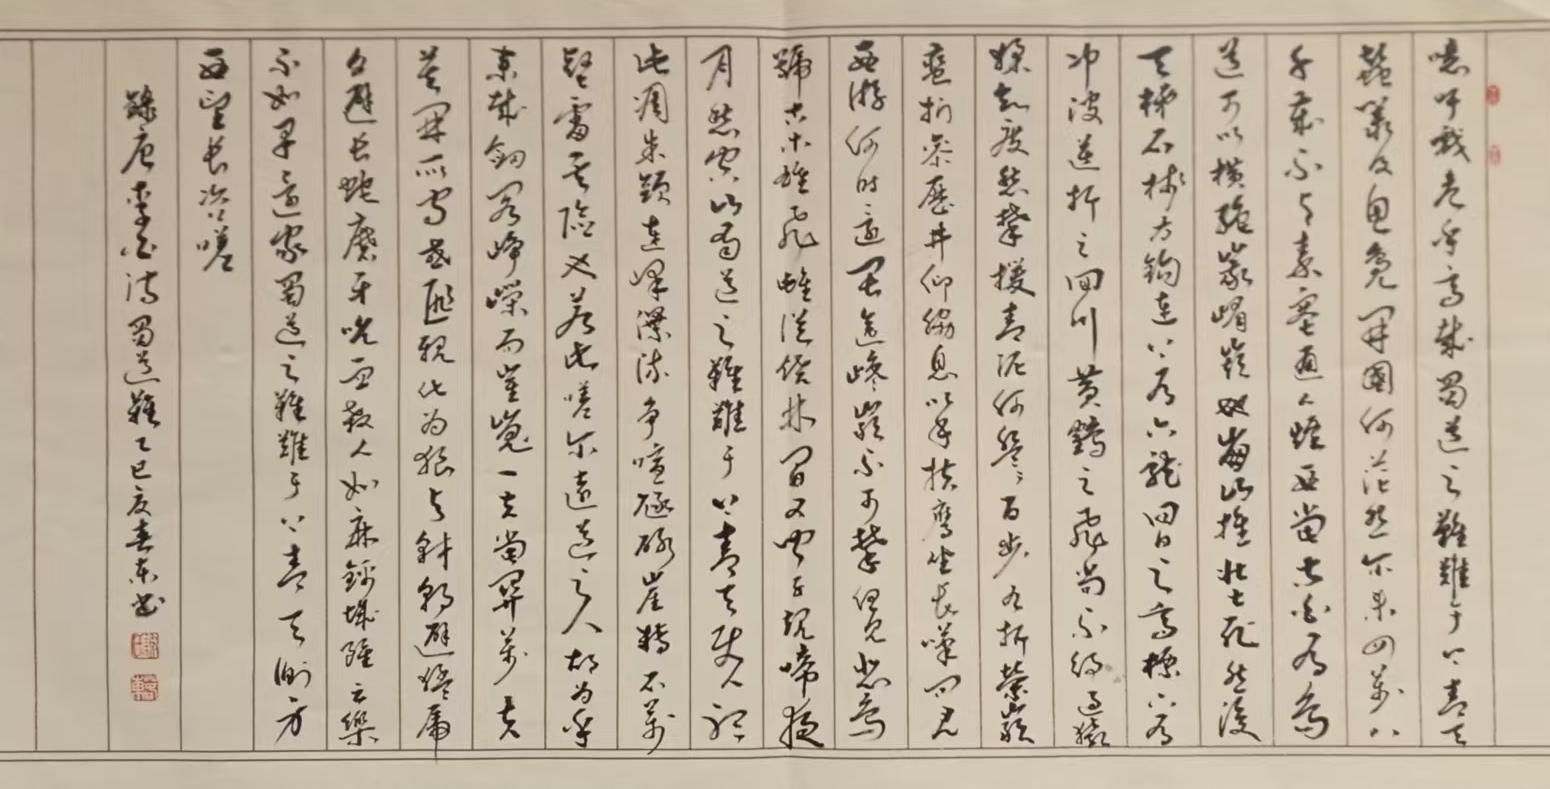 噫吁戏危乎高哉蜀道之難難于上青天
蠶叢及魚凫開國何茫然尔来四萬八
千歲不与秦塞通人煙西當太白有鳥
道可以横絶峨嵋巅地崩山摧壮士死然後
天梯石栈方鈎連上有六龍回日之高標下有
冲波逆折之回川黄鶴之飛尚不得過猿
猱欲度愁攀援青泥何盤盤百步九折縈巖
巒扪参歷井仰脇息以手扶膺坐長嘆問君
西游何時還畏途巉巖不可攀但見悲鳥
號古木雄飛雌從繞林間又聞子規啼夜
月愁空山蜀道之難難于上青天使人聽
此凋朱顔連峰瀑流争喧豗砯崖轉石萬
壑雷其險也若此嗟尔遠道之人胡为乎
来哉劍閣峥嵘而崔嵬一夫當關萬夫
莫開所守或匪親化为狼与豺朝避猛虎
夕避长蛇磨牙吮血殺人如麻錦城雖云樂
不如早還家蜀道之難難于上青天側身
西望长咨嗟
錄唐李白诗蜀道難乙巳夏春东书